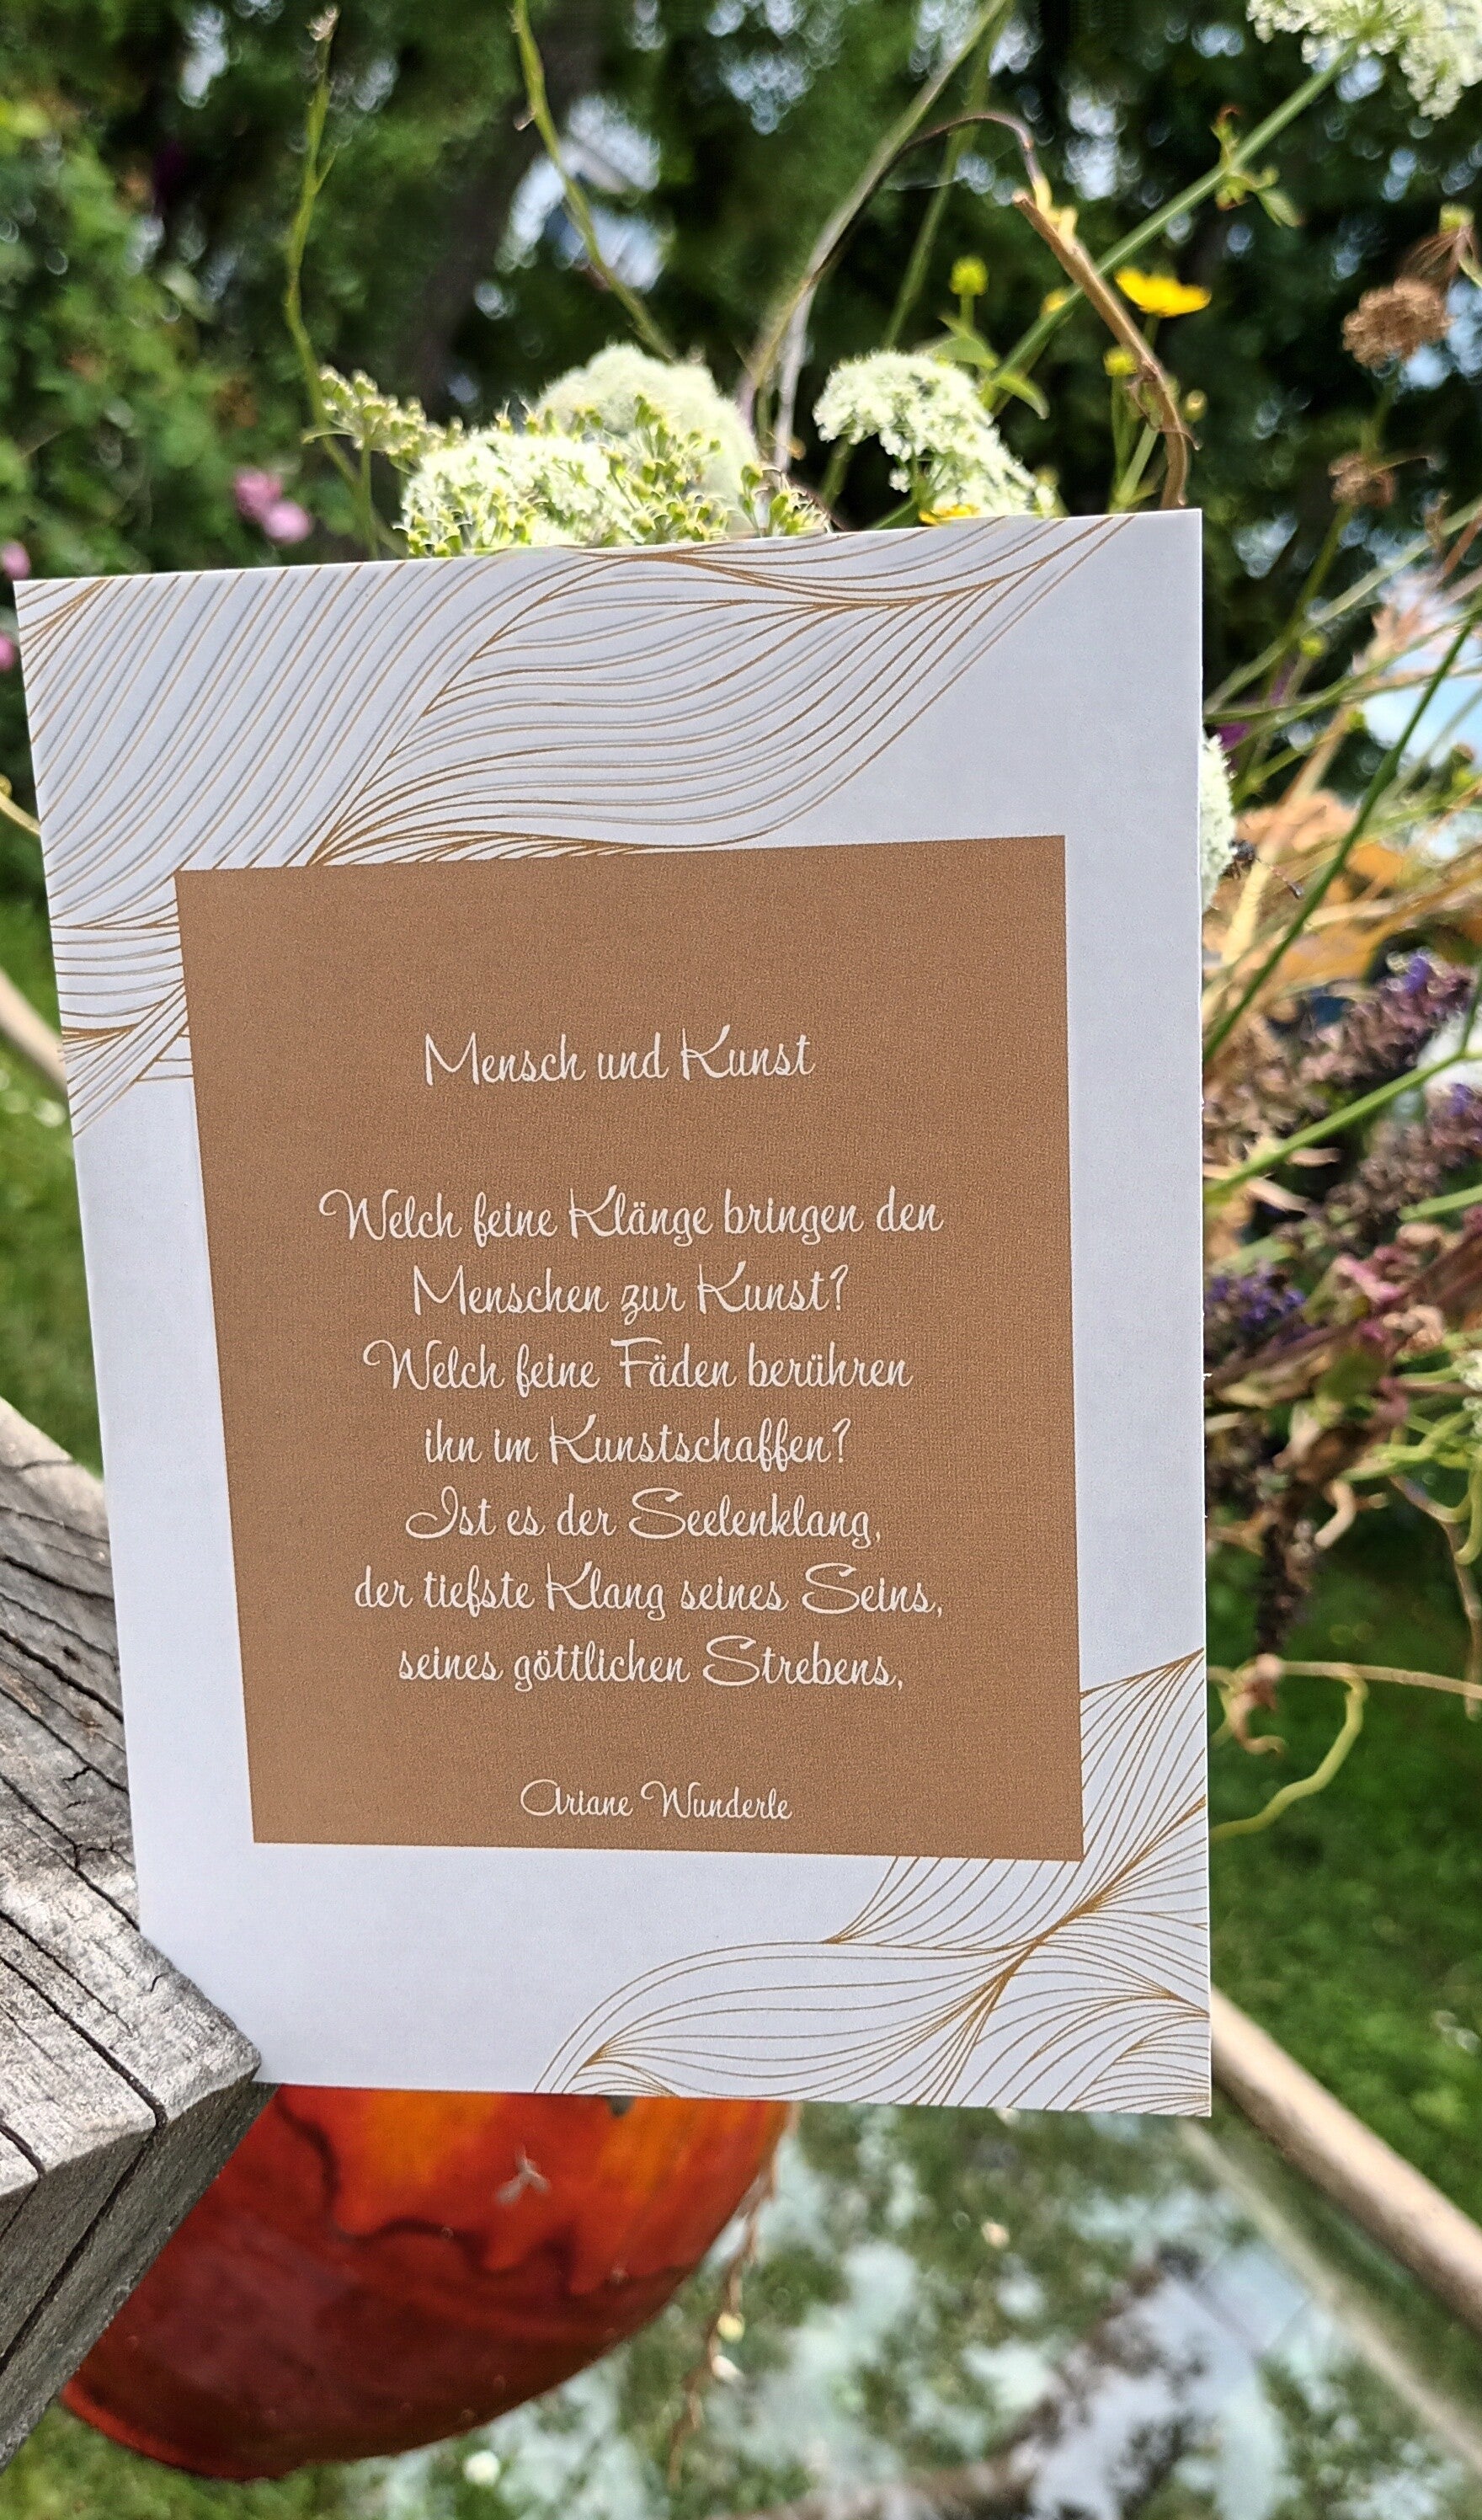 Mensch und Kunst
Welch feine Klänge bringen den
Menschen zur Kunst?
Welch feine Fäden berühren
ihn im Kunstschaffen?
Ist es der Seelenklang,
der tiefste Klang seines Seins,
seines göttlichen Strebens,
Ariane Wunderle